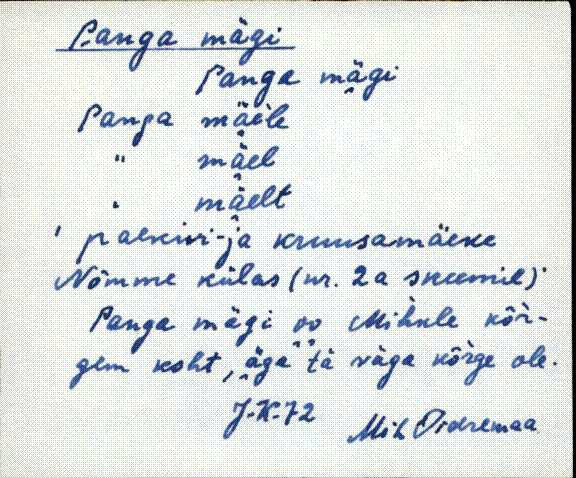 Panga mägi
Panga mägi
Panga mäele
" mäel
" mäelt
' paekivi- ja kruusamäeke
Nõmme külas (nr. 2a skeemil)'
Panga mägi oo Mihkle kõr-
gem koht, äga tä väga kõrge ole.
J-K-72
Mih Oidremaa